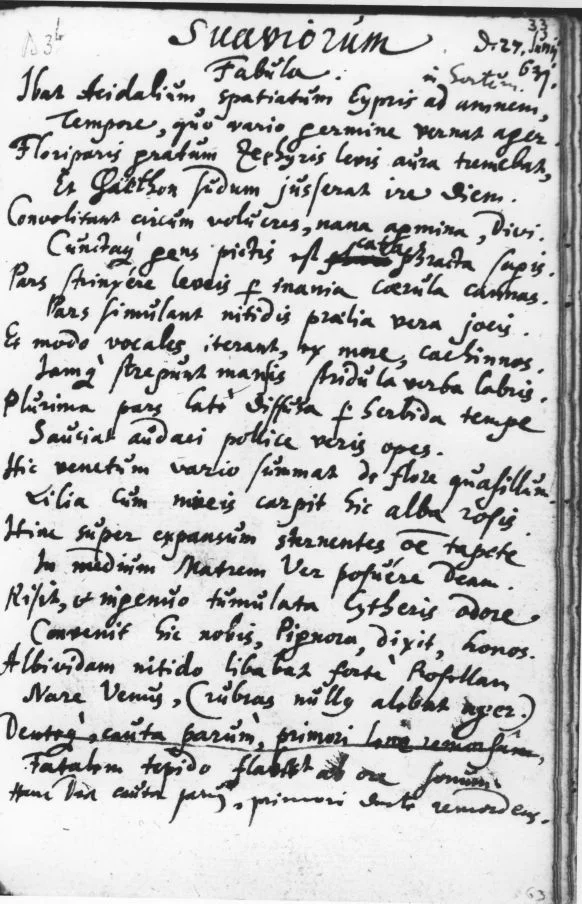 33
Suaviorum
Fabula.
De 27. Junij
in hortum. 631.
Ibat Acidalium spatiatum Cypris ad amnem,
Tempore, quo vario germine vernat ager.
Floriparis pratum Zephyris levis aura tremebat,
Et Phaëthon sudum jusserat ire diem.
Convolitant circum volucres, nana agmina, Divi.
Cunctaq; gens pictis est cataphracta sagis.
Pars stringére leveis p inania cærula cannas.
Pars simulant nitidis prælia vera jocis.
Et modo vocales iterant, ex more, cachinnos.
Jamq; strepunt mansis stridula verba labris.
Plurima pars latè diffusa p herbida tempe
Sauciat audaci pollice veris opes.
Hic venetum vario summat de flore quasillum.
Lilia cum niveis carpit hic alba rosis.
Hinc super expansum sternentes oē tapete
In medium Matrem Ver posuére Deam.
Risit, & ingenuo tumulata Cytheris odore
Convenit hic nobis, Pignora, dixit, honos.
Albividam nitido libabat fortè Rosellam
Nare Venus, (rubras nullq alebat ager.)
Denteq;, cauta parum, primori remorsam,
Fatalem tepido flavit ab ore sonum.
Hanc Dea cauta parū, primori dente remordens.
63